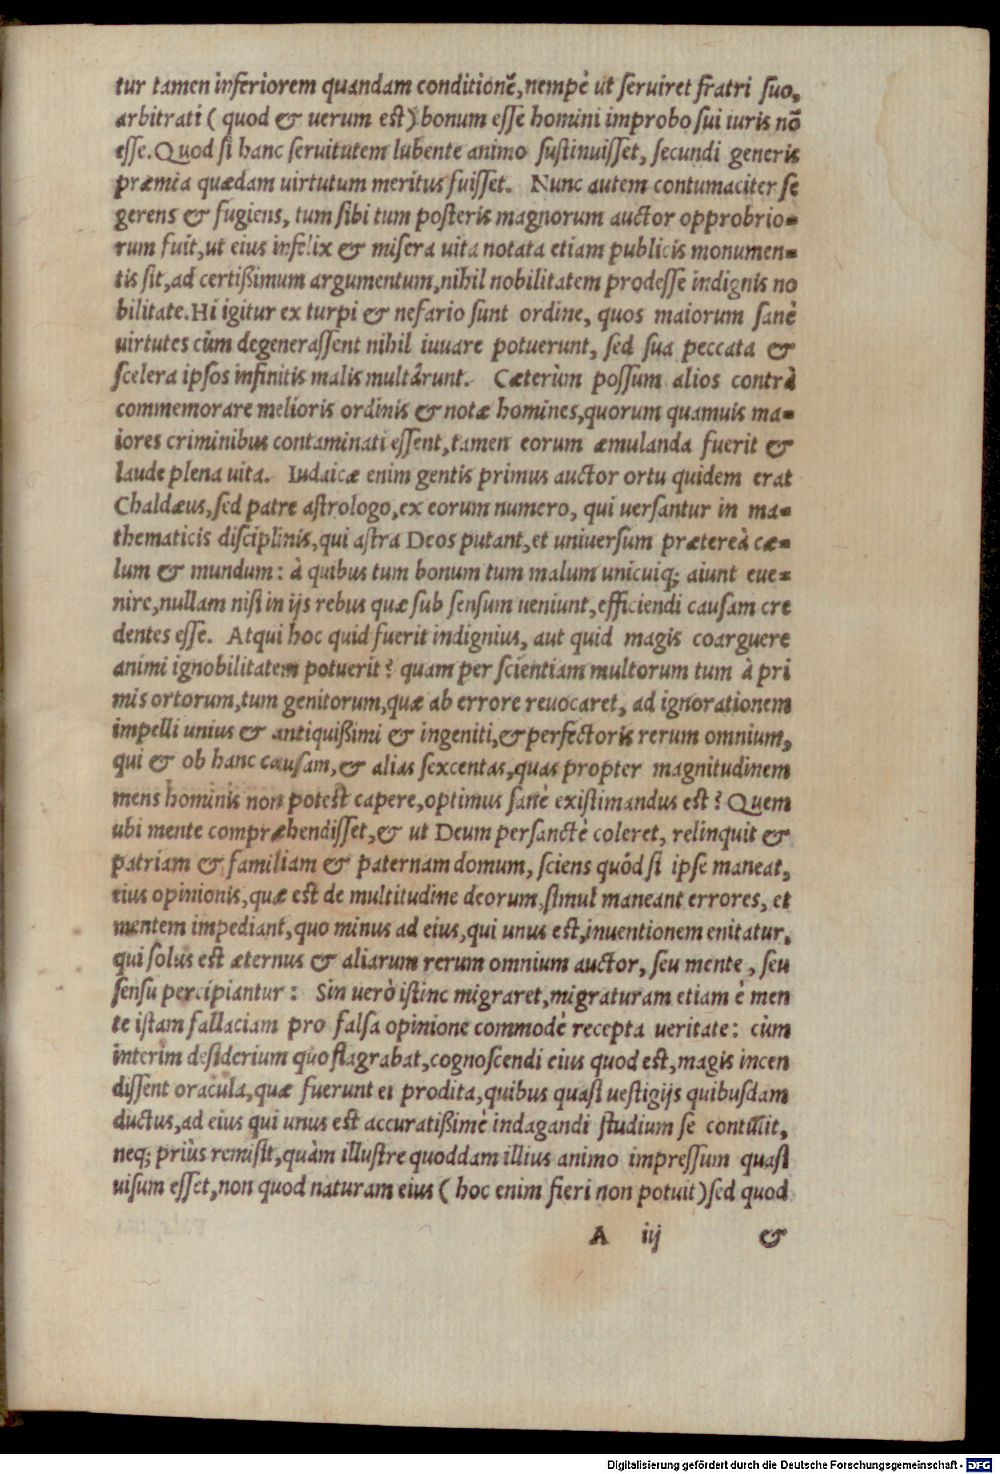 tur tamen inferiorem quandam conditionẽ, nempè ut ſeruiret fratri ſuo,
arbitrati ( quod & uerum eſt ) bonum eſſe homini improbo ſui iuris nõ
eſſe. Quod ſi hanc ſeruitutem lubente animo ſuſtinuiſſet, ſecundi generis
præmia quædam uirtutum meritus fuiſſet. Nunc autem contumaciter ſe
gerens & fugiens, tum ſibi tum poſteris magnorum auctor opprobrio=
rum fuit, ut eius infelix & miſera uita notata etiam publicis monumen=
tis ſit, ad certißimum argumentum, nihil nobilitatem prodeſſe indignis no
bilitate. Hi igitur ex turpi & nefario ſunt ordine, quos maiorum ſanè
uirtutes cùm degeneraſſent nihil iuuare potuerunt, ſed ſua peccata &
ſcelera ipſos infinitis malis multârunt. Cæterùm poſſum alios contrà
commemorare melioris ordinis & notæ homines, quorum quamuis ma=
iores criminibus contaminati eſſent, tamen eorum æmulanda fuerit &
laude plena uita. Iudaicæ enim gentis primus auctor ortu quidem erat
Chaldæus, ſed patre aſtrologo, ex eorum numero, qui uerſantur in ma=
thematicis diſciplinis, qui aſtra Deos putant, et uniuerſum prætereà cæ=
lum & mundum: à quibus tum bonum tum malum unicuiq; aiunt eue=
nire, nullam niſi in ijs rebus quæ ſub ſenſum ueniunt, efficiendi cauſam cre
dentes eſſe. Atqui hoc quid fuerit indignius, aut quid magis coarguere
animi ignobilitatem potuerit? quam per ſcientiam multorum tum à pri
mis ortorum, tum genitorum, quæ ab errore reuocaret, ad ignorationem
impelli unius & antiquißimi & ingeniti, & perfectoris rerum omnium,
qui & ob hanc cauſam, & alias ſexcentas, quas propter magnitudinem
mens hominis non poteſt capere, optimus ſanè exiſtimandus eſt? Quem
ubi mente compræhendiſſet, & ut Deum perſanctè coleret, relinquit &
patriam & familiam & paternam domum, ſciens quòd ſi ipſe maneat,
eius opinionis, quæ eſt de multitudine deorum, ſimul maneant errores, et
mentem impediant, quo minus ad eius, qui unus eſt, inuentionem enitatur,
qui ſolus eſt æternus & aliarum rerum omnium auctor, ſeu mente, ſeu
ſenſu percipiantur: Sin uerò iſtinc migraret, migraturam etiam è men
te iſtam fallaciam pro falſa opinione commodè recepta ueritate: cùm
interim deſiderium quo flagrabat, cognoſcendi eius quod eſt, magis incen
diſſent oracula, quæ fuerunt ei prodita, quibus quaſi ueſtigijs quibuſdam
ductus, ad eius qui unus eſt accuratißimè indagandi ſtudium ſe contulit,
neq; priùs remiſit, quàm illuſtre quoddam illius animo impreſſum quaſi
uiſum eſſet, non quod naturam eius ( hoc enim fieri non potuit ) ſed quod
A iij &
Digitalisierung gefördert durch die Deutsche Forschungsgemeinschaft - DFG